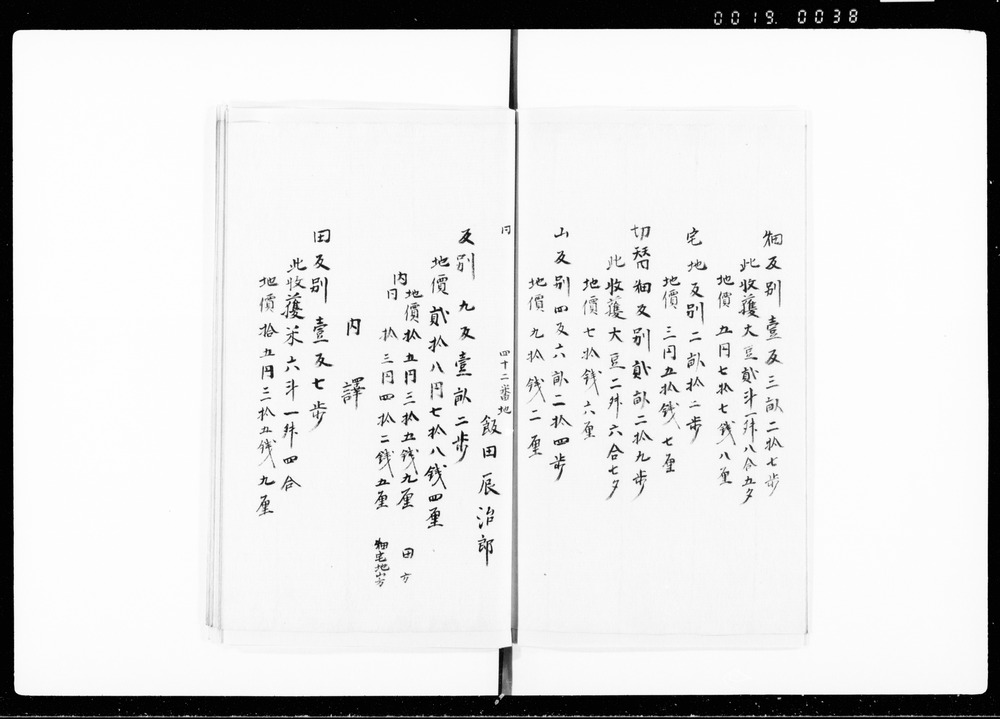 0019.0038
畑反別 壹反三畝二拾七歩
此收獲大豆貳斗一舛八合五夕
地價 五円七拾七銭八厘
宅地反別二畝拾二歩
地價 三円五拾銭七厘
切替畑反別貳畝二拾九歩
此收獲大豆二舛六合七夕
地價七拾銭六厘
山反別四反六畝二拾四歩
地價九拾銭二厘
同 四十二番地
飯田辰治郎
反別 九反壹畝二歩
地價貳拾八円七拾八銭四厘
内地價拾五円三拾五銭九厘 田方
内円 拾三円四拾二銭五厘 畑宅地山方
内譯
田反別 壹反七歩
此收獲米六斗一舛四合
地價拾五円三拾五銭九厘